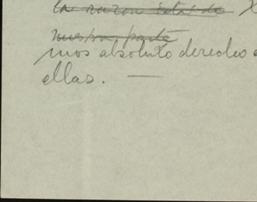 la razon está de
nuestra parte
mos absoluto derecho
ellas. —